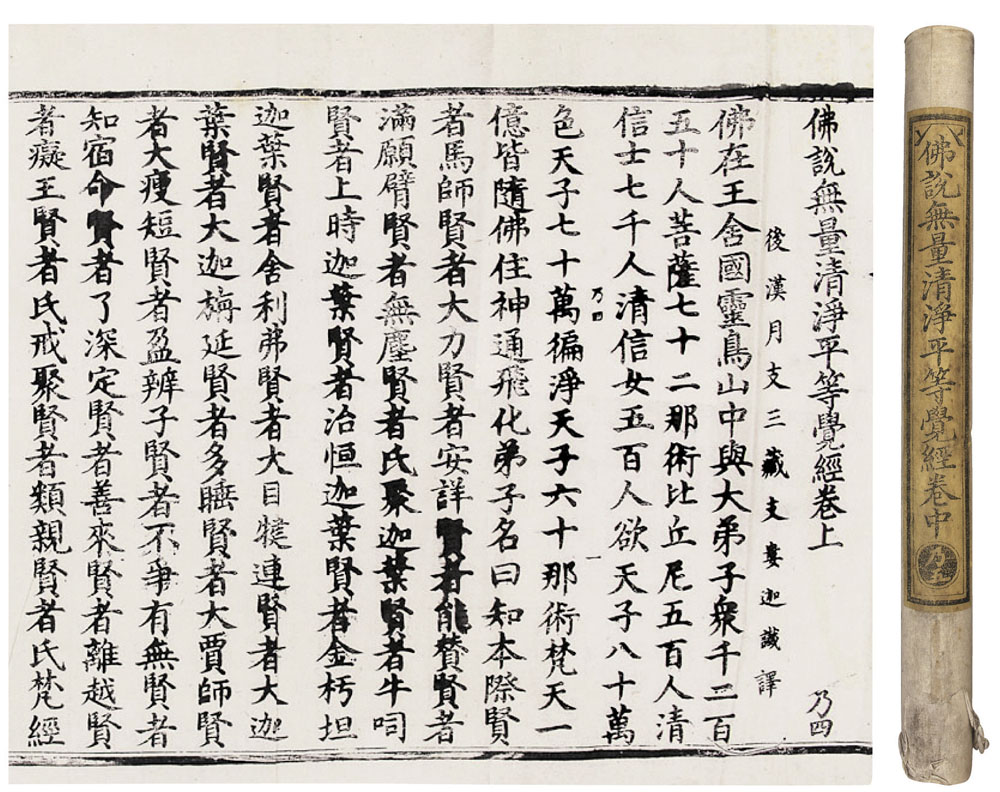 佛說無量清淨平等覺經卷上 乃四
後漢月支三藏支婁迦讖譯
佛在王舍國靈鳥山中與大弟子衆千二百
五十人菩薩七十二那術比丘尼五百人清
信士七千人清信女五百人欲天子八十萬
乃四 一
色天子七十萬徧淨天子六十那術梵天一
億皆隨佛住神通飛化弟子名曰知本際賢
者馬師賢者大力賢者安詳賢者能贊賢者
滿願臂賢者無塵賢者氏聚迦葉賢者牛呞
賢者上時迦葉賢者治恒迦葉賢者金杇坦
迦葉賢者舍利弗賢者大目犍連賢者大迦
葉賢者大迦旃延賢者多睡賢者大賈師賢
者大瘦短賢者盈辨子賢者不爭有無賢者
知宿命賢者了深定賢者善來賢者離越賢
者癡王賢者氏戒聚賢者類親賢者氏梵經
佛說無量清淨平等覺經卷中